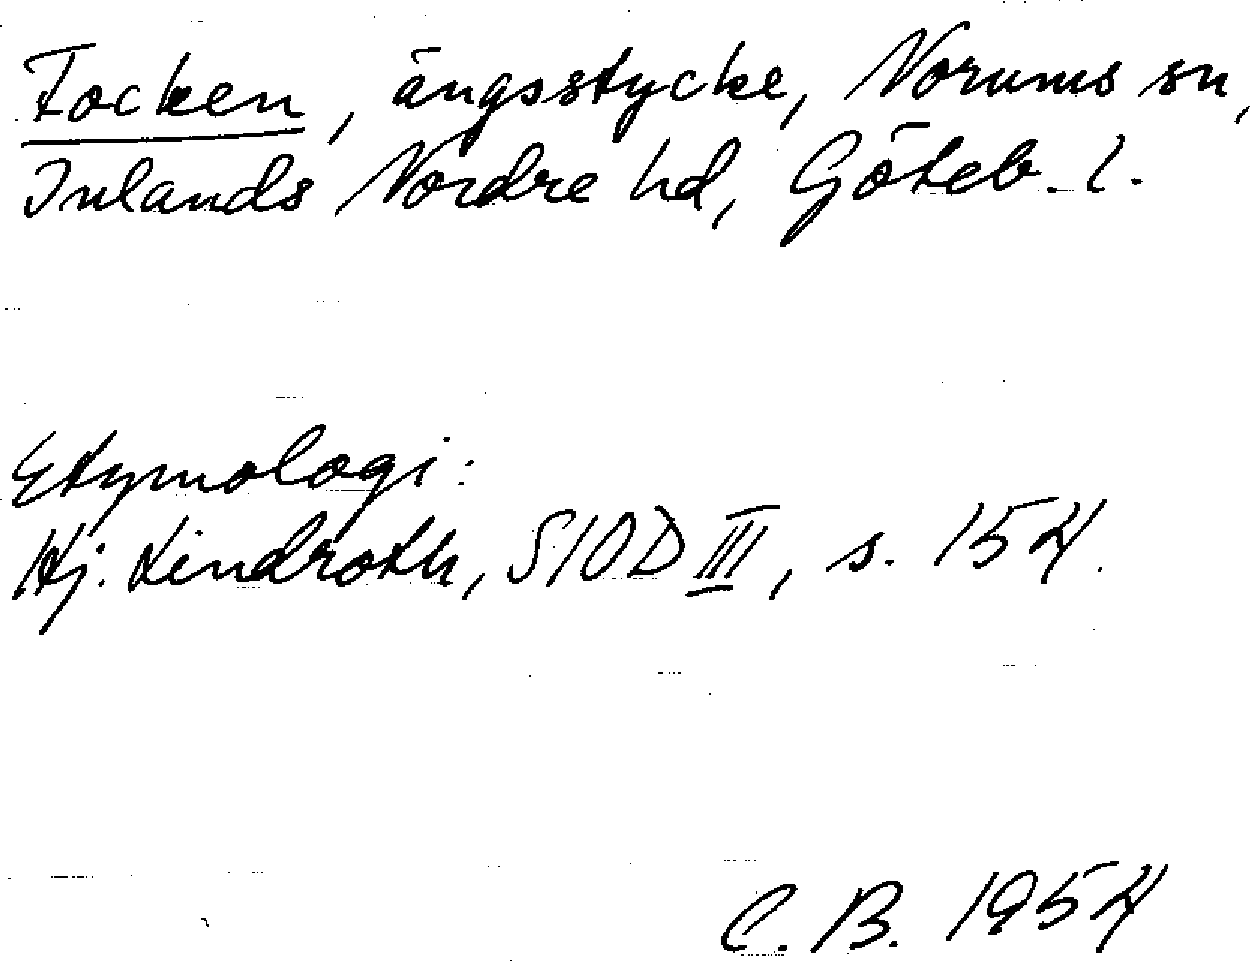 Focken, ängsstycke, Norums sn,
Inlands Nordre hd, Göteb. l.
Etymologi:
Hj. Lindroth, SIOD III, s. 154.
C. B. 1954